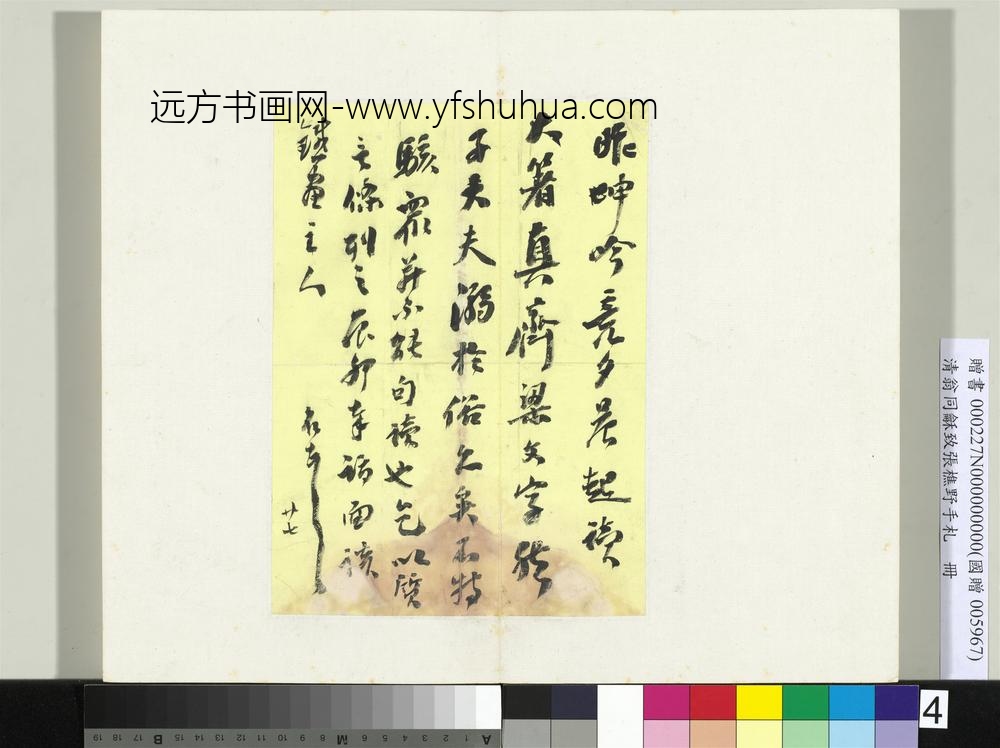 远方书画网-www.yfshuhua.com
昨呻吟竟夕晨起读
大箸真齊梁文字
子天夫溺於俗久矣不特
駭眾并不能句讀也乞以質
言條列之辰卯奉詣面
鐵畫主人
名 廿七
贈書 000227N000000000(國贈 005967)
清翁同龢致張樵野手札 冊
4
A 1 2 3 4 5 6 M 8 9 10 11 12 13 14 15 B 17 18 19